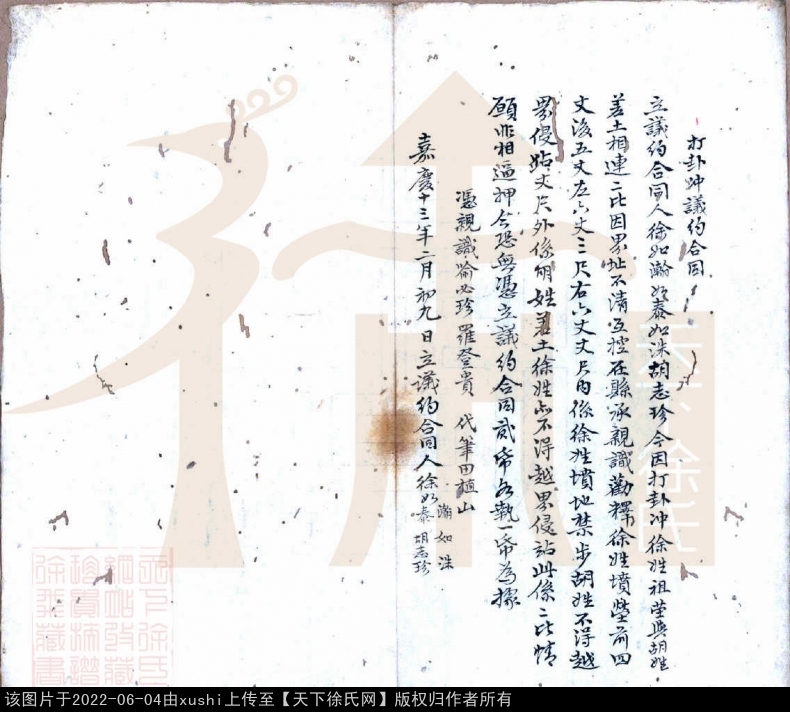 打卦冲議約合同
立議約合同人徐如瀚如泰如洙胡志珍今因打卦冲徐姓祖塋與胡姓
羞土相連二比因界址不清互控在縣承親識勸釋徐姓墳塋前四
丈後五丈左六丈三尺右六丈丈尺内係徐姓墳地禁步胡姓不得越
界侵站丈尺外係胡姓羞土徐姓亦不得越界侵站此係二比情
願非相逼押今恐無憑立議約合同貳帋各執一帋為據
憑親識喻必珍 羅登貴 代筆田植山
嘉慶十三年二月初九日立議約合同人徐如瀚 如洙 泰 胡志珍
天下徐氏
该图片于2022-06-04由xushi上传至【天下徐氏网】版权归作者所有